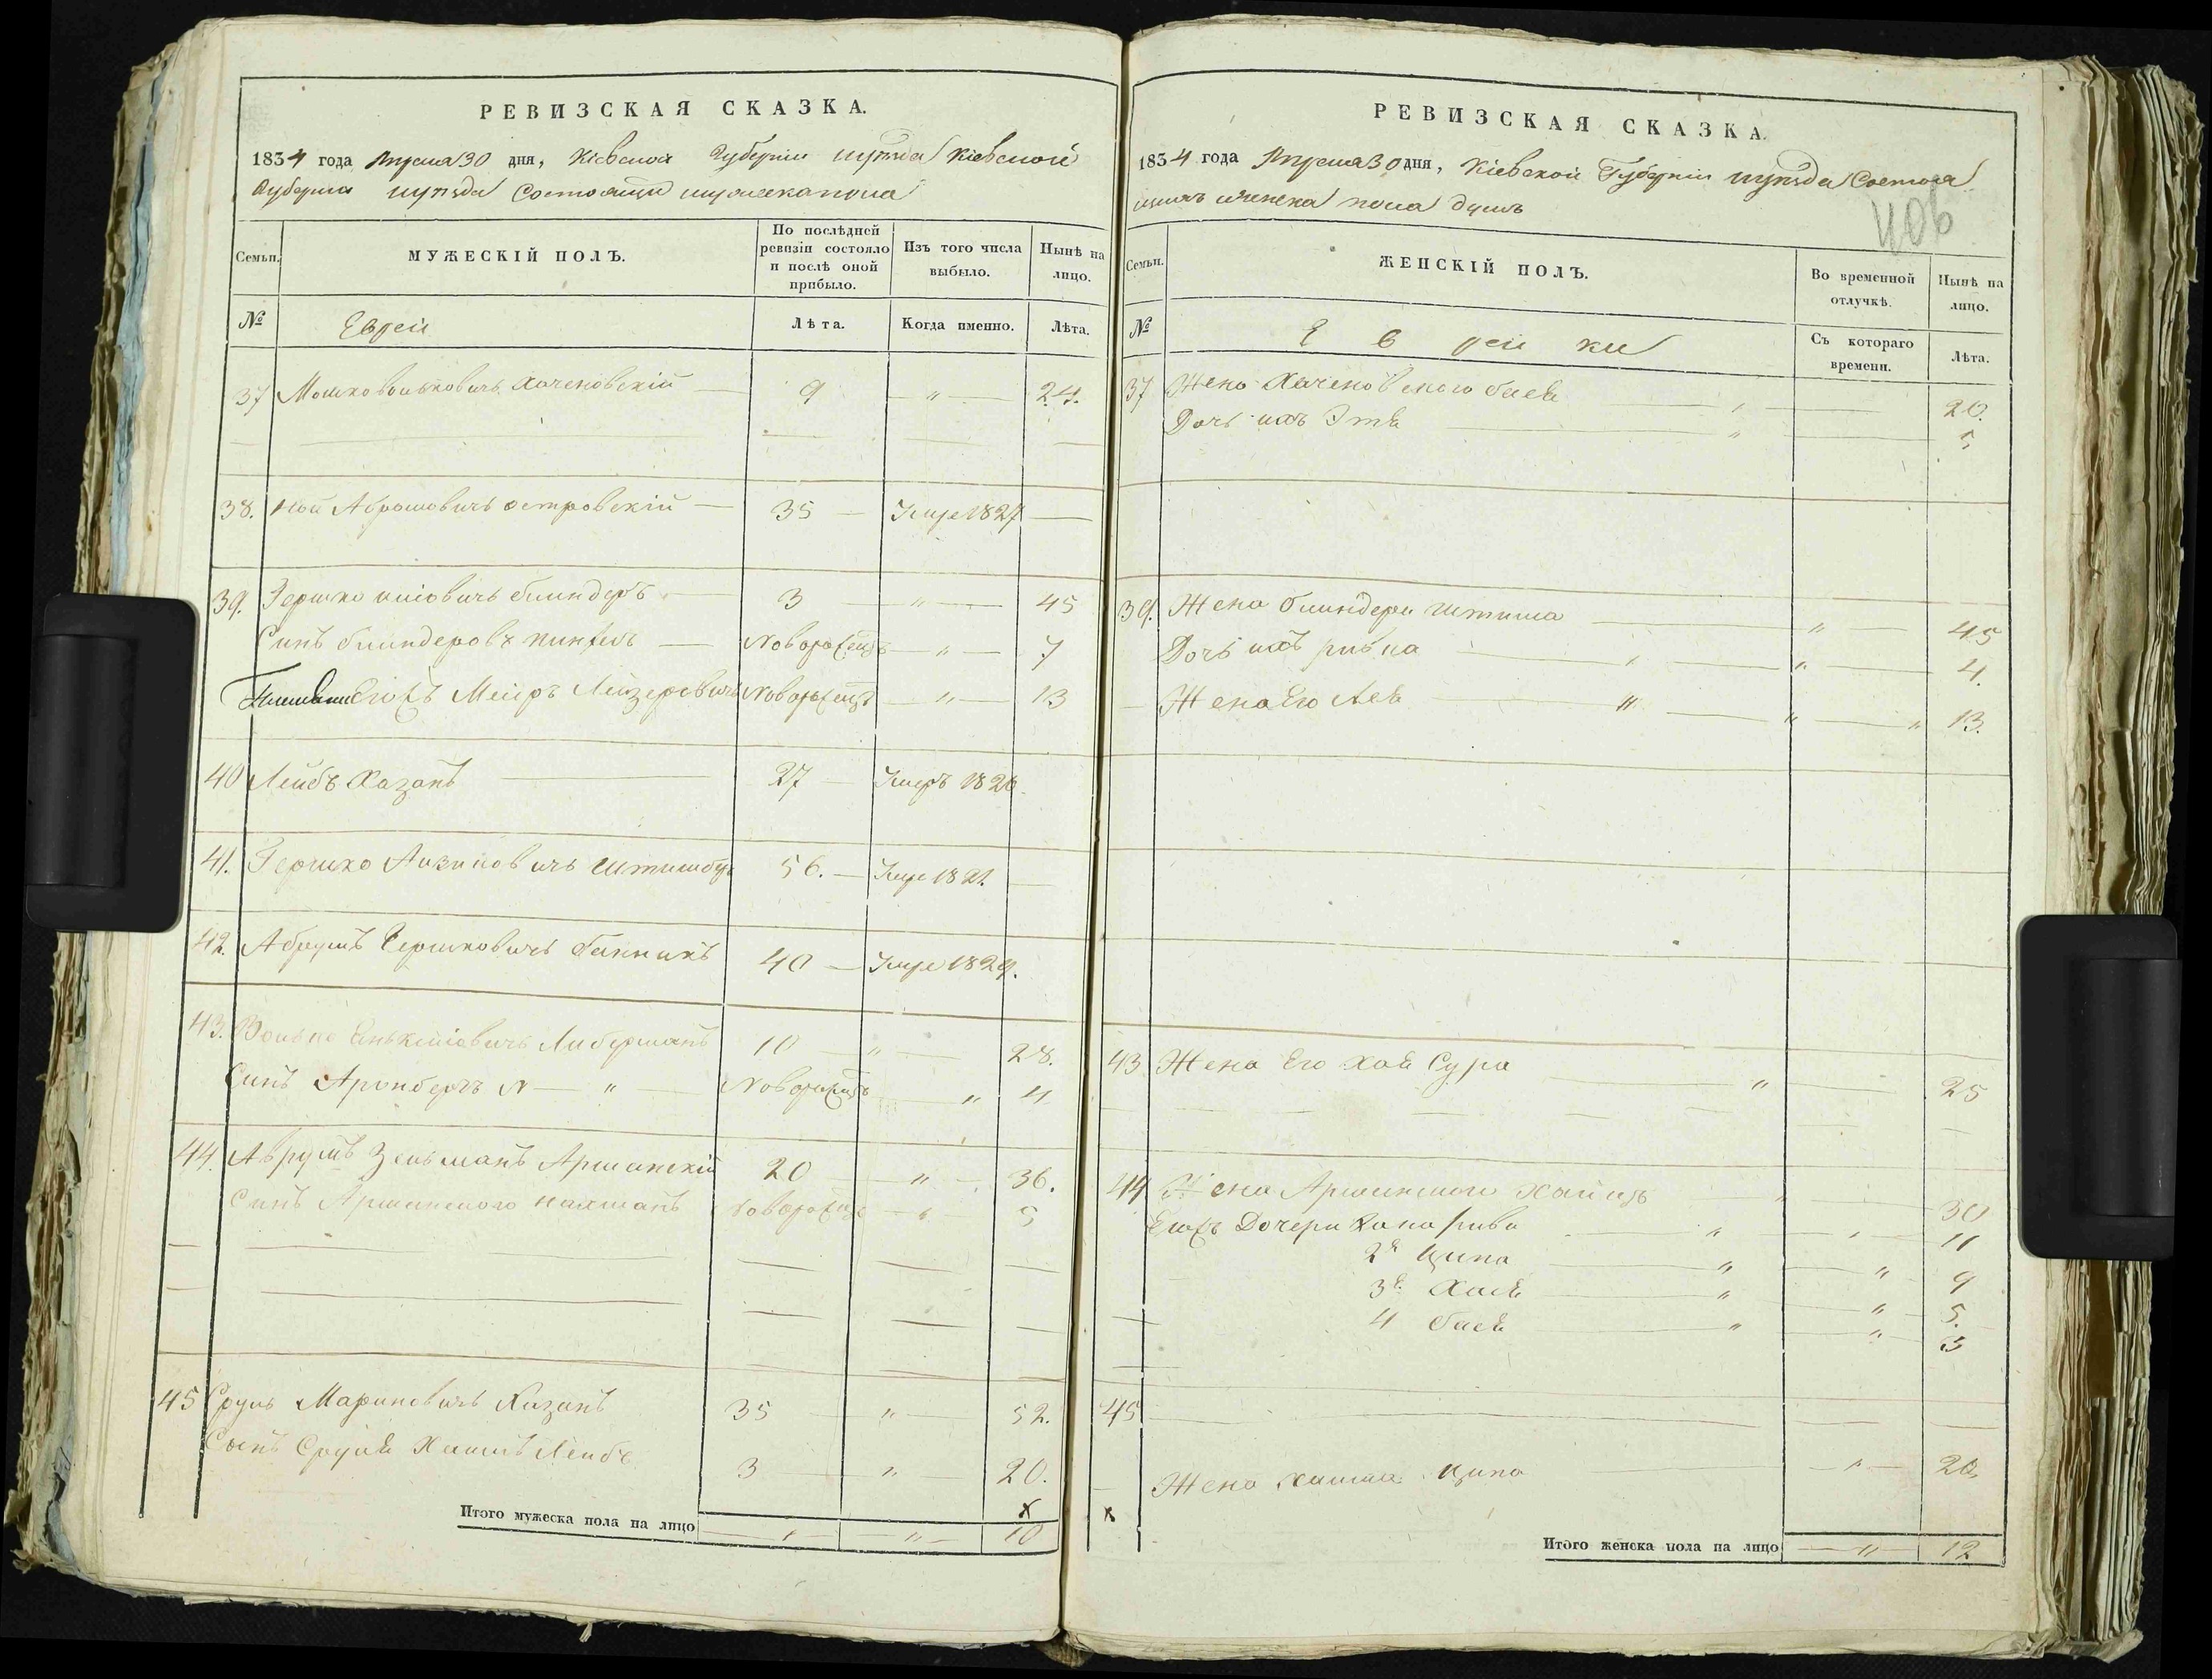 РЕВИЗСКАЯ СКАЗКА.
1834 года Апреля 30 дня, Кіевской Губерніи уезда Кіевской
Губерніи уезда Состоящих мужеска пола
Семьи.
МУЖЕСКІЙ ПОЛЪ.
По послѣдней ревизіи состояло и послѣ оной прибыло.
Изъ того числа выбыло.
Нынѣ на лицо.
№ Евреи Лѣта. Когда именно. Лѣта.
37 Мошко Волковичь Каченовскій 9 — " — 24.
38. Ной Абрамовичь Островскій — 35 — Умре 1827 —
39. Гершко блиндеръ 3 — " — 45
Синъ блиндеровъ — Новорожеnъ — " — 7
Егожъ Меиръ Лейзеровичь Новорожеnъ — " — 13
40 Лейбъ Хазанъ — 27 — Умеръ 1826.
41. Гершко 56. — Умре 1821. —
42. Абрумъ Гершковичь 40 — Умре 1829.
43. Волько Либерманъ 10 — " — 28.
Синъ Аронберъ — " — Новорожеnъ — " 4
44. Аврумъ Зельманъ 20 — " — 36.
Синъ Нахманъ Новорожеnъ — " — 5
45 Сруль Хазанъ 35 — " — 52.
Сынъ Сруля Хаимъ Лейбъ 3 — " — 20.
х
Итого мужеска пола на лицо — " — — " — 10
РЕВИЗСКАЯ СКАЗКА.
1834 года Апреля 30 дня, Кіевской Губерніи уезда Состоя
щихъ женска пола душъ
406
Семьи.
ЖЕНСКІЙ ПОЛЪ.
Во временной отлучкѣ.
Нынѣ на лицо.
№ Еврейки Съ котораго времени. Лѣта.
37 Жена Каченовского Бася 20.
Дочь ихъ Этя — " — 5
39. Жена блиндера — " — 45
Дочь ихъ Ривка — " — 4.
Жена Его Лея — " — " 13.
43 Жена Его Хая Сура — " — 25
44 Жена — " — 30
Егожъ Дочери Хана Рива — " — 11
2я Ципа — " — " 9
3я Хая — " — " 5.
4 Бася — " — " 3
45 —
Жена Хаима Ципа — " — 20
х
Итого женска пола на лицо — " — 12